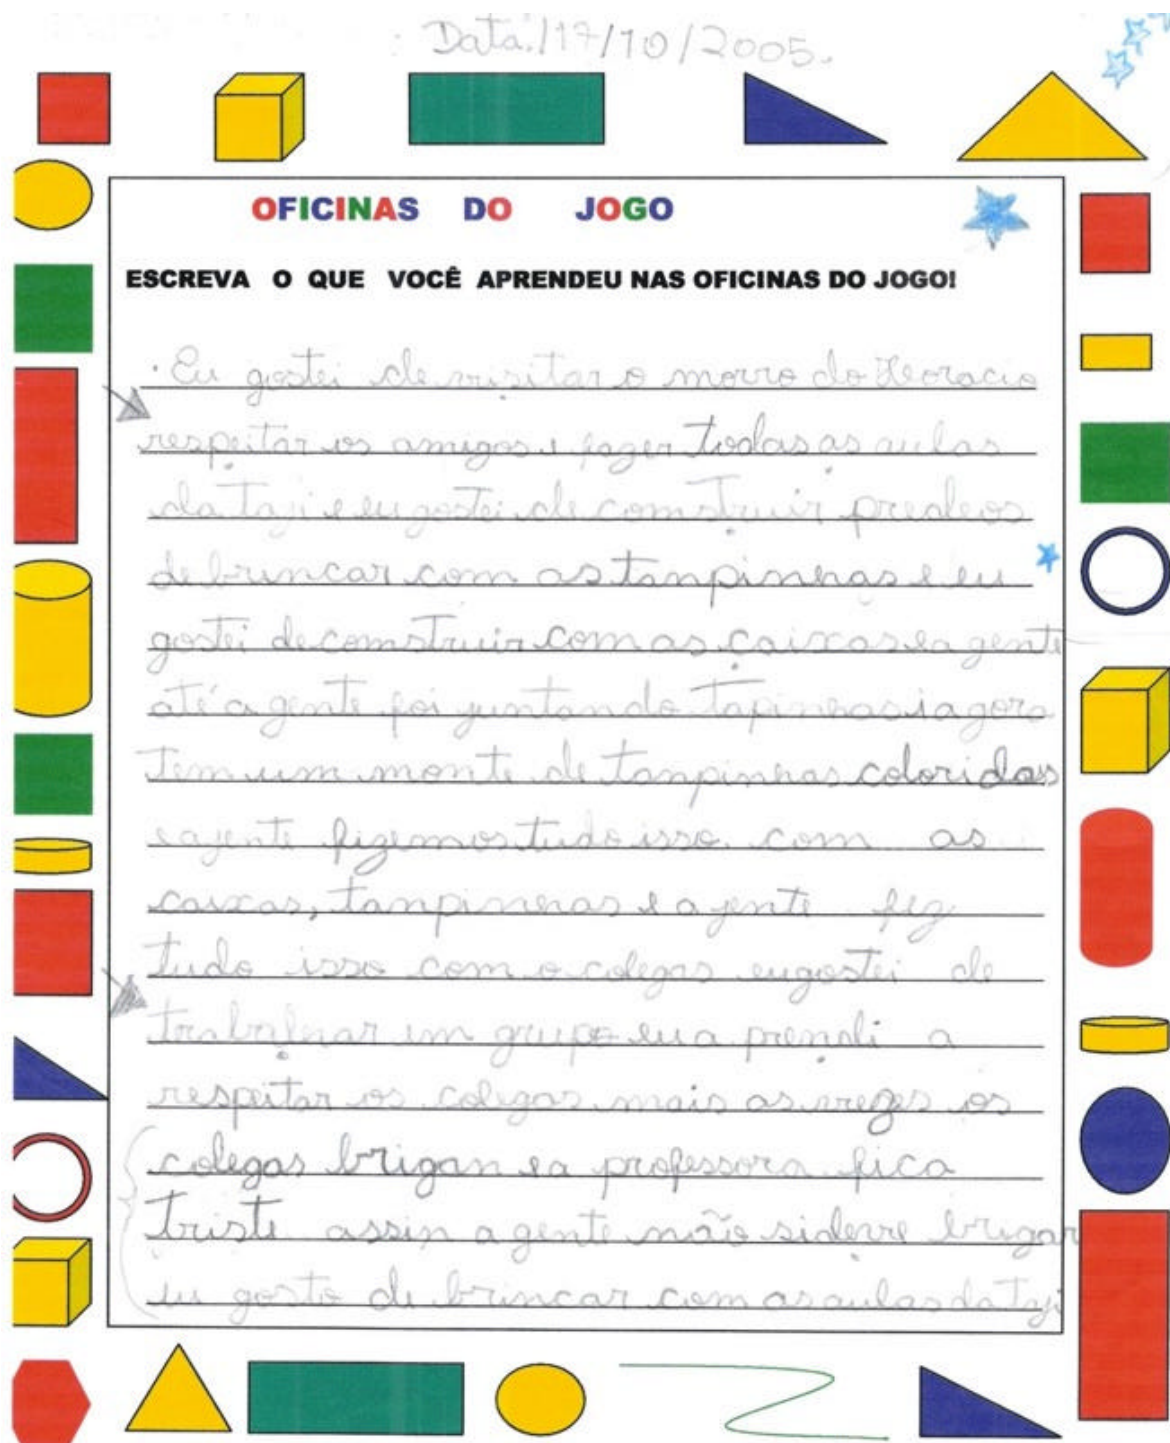 Data:/17/10/2005.
OFICINAS DO JOGO
ESCREVA O QUE VOCÊ APRENDEU NAS OFICINAS DO JOGO!
Eu gostei de visitar o morro do Horacio
respeitar os amigos e fazer todas as aulas
da Taji e eu gostei de comstruir predeos
de brincar com as tanpinhas e eu
gostei de comstruir com as caixas e a gente
até a gente foi juntando tapinhas i agora
tem um monte de tanpinhas coloridas
e a jente fizemos tudo isso com as
caixas, tanpinhas e a jente fez
tudo isso com o colegas eu gostei de
trabalhar em grupo eu a prendi a
respeitar os colegas mais as vezes os
colegas brigan e a professora fica
triste assin a gente não si deve brigar
eu gosto de brincar com as aulas da Taji